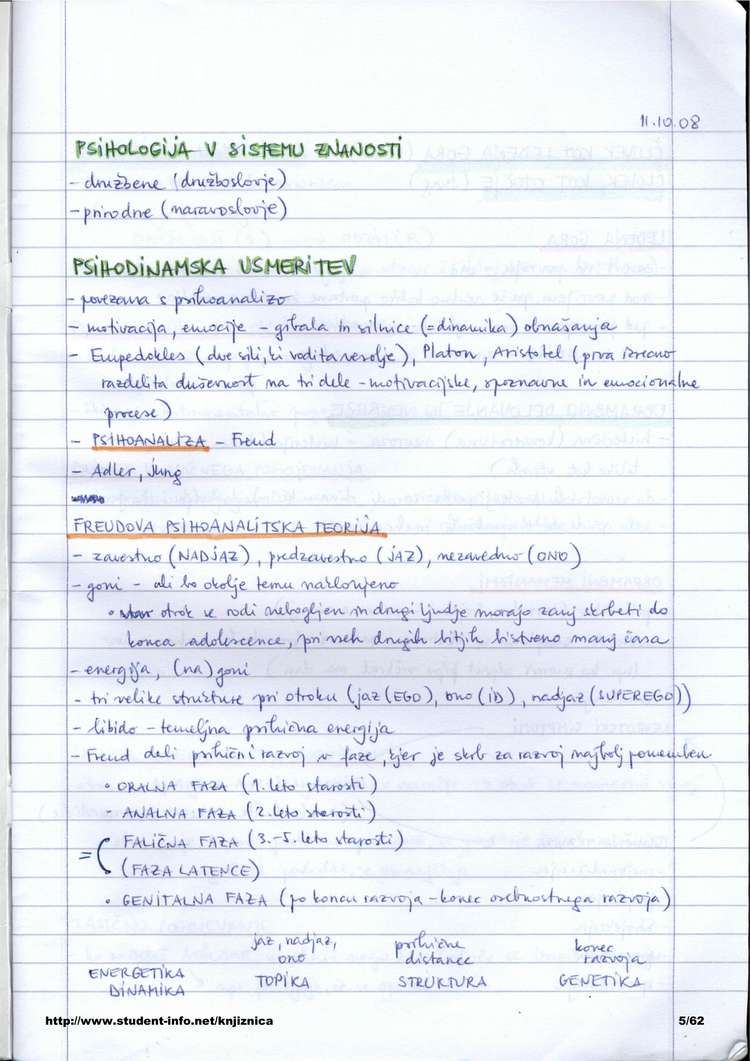 11.10.08
PSIHOLOGIJA V SISTEMU ZNANOSTI
- družbene (družboslovje)
- prirodne (naravoslovje)
PSIHODINAMSKA USMERITEV
- povezana s psihoanalizo
- motivacija, emocije - gibala in silnice (= dinamika) obnašanja
- Empedokles (dve sili, ki vodita vesolje), Platon, Aristotel (prva izrecno
razdelita duševnost na tri dele - motivacijske, spoznavne in emocionalne
procese)
- PSIHOANALIZA - Freud
- Adler, Jung
FREUDOVA PSIHOANALITSKA TEORIJA
- zavestno (NADJAZ), predzavestno (JAZ), nezavedno (ONO)
- goni - ali bo okolje temu naklonjeno
• otrok se rodi nebogljen in drugi ljudje morajo zanj skrbeti do
konca adolescence, pri vseh drugih bitjih bistveno manj časa
- energija, (na)goni
- tri velike strukture pri otroku (jaz (EGO), ono (ID), nadjaz (SUPEREGO))
- libido - temeljna psihična energija
- Freud deli psihični razvoj v faze, kjer je skrb za razvoj najbolj pomemben
• ORALNA FAZA (1. leto starosti)
• ANALNA FAZA (2. leto starosti)
= ( FALIČNA FAZA (3.-5. leto starosti)
(FAZA LATENCE)
• GENITALNA FAZA (po koncu razvoja - konec osebnostnega razvoja)
jaz, nadjaz, psihične konec
ono distance razvoja
ENERGETIKA TOPIKA STRUKTURA GENETIKA
DINAMIKA
http://www.student-info.net/knjiznica 5/62